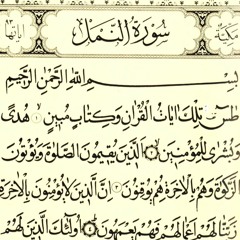 مكية سورة النمل آياتها
بسم الله الرحمن الرحيم
طس تلك ايات القرآن وكتاب مبين ١ هدى
وبشرى للمؤمنين ٢ الذين يقيمون الصلوة ويؤتون
الزكوة وهم بالاخرة هم يوقنون ٣ ان الذين لا يؤمنون بالاخرة
زينا لهم اعمالهم فهم يعمهون ٤ اولئك الذين لهم